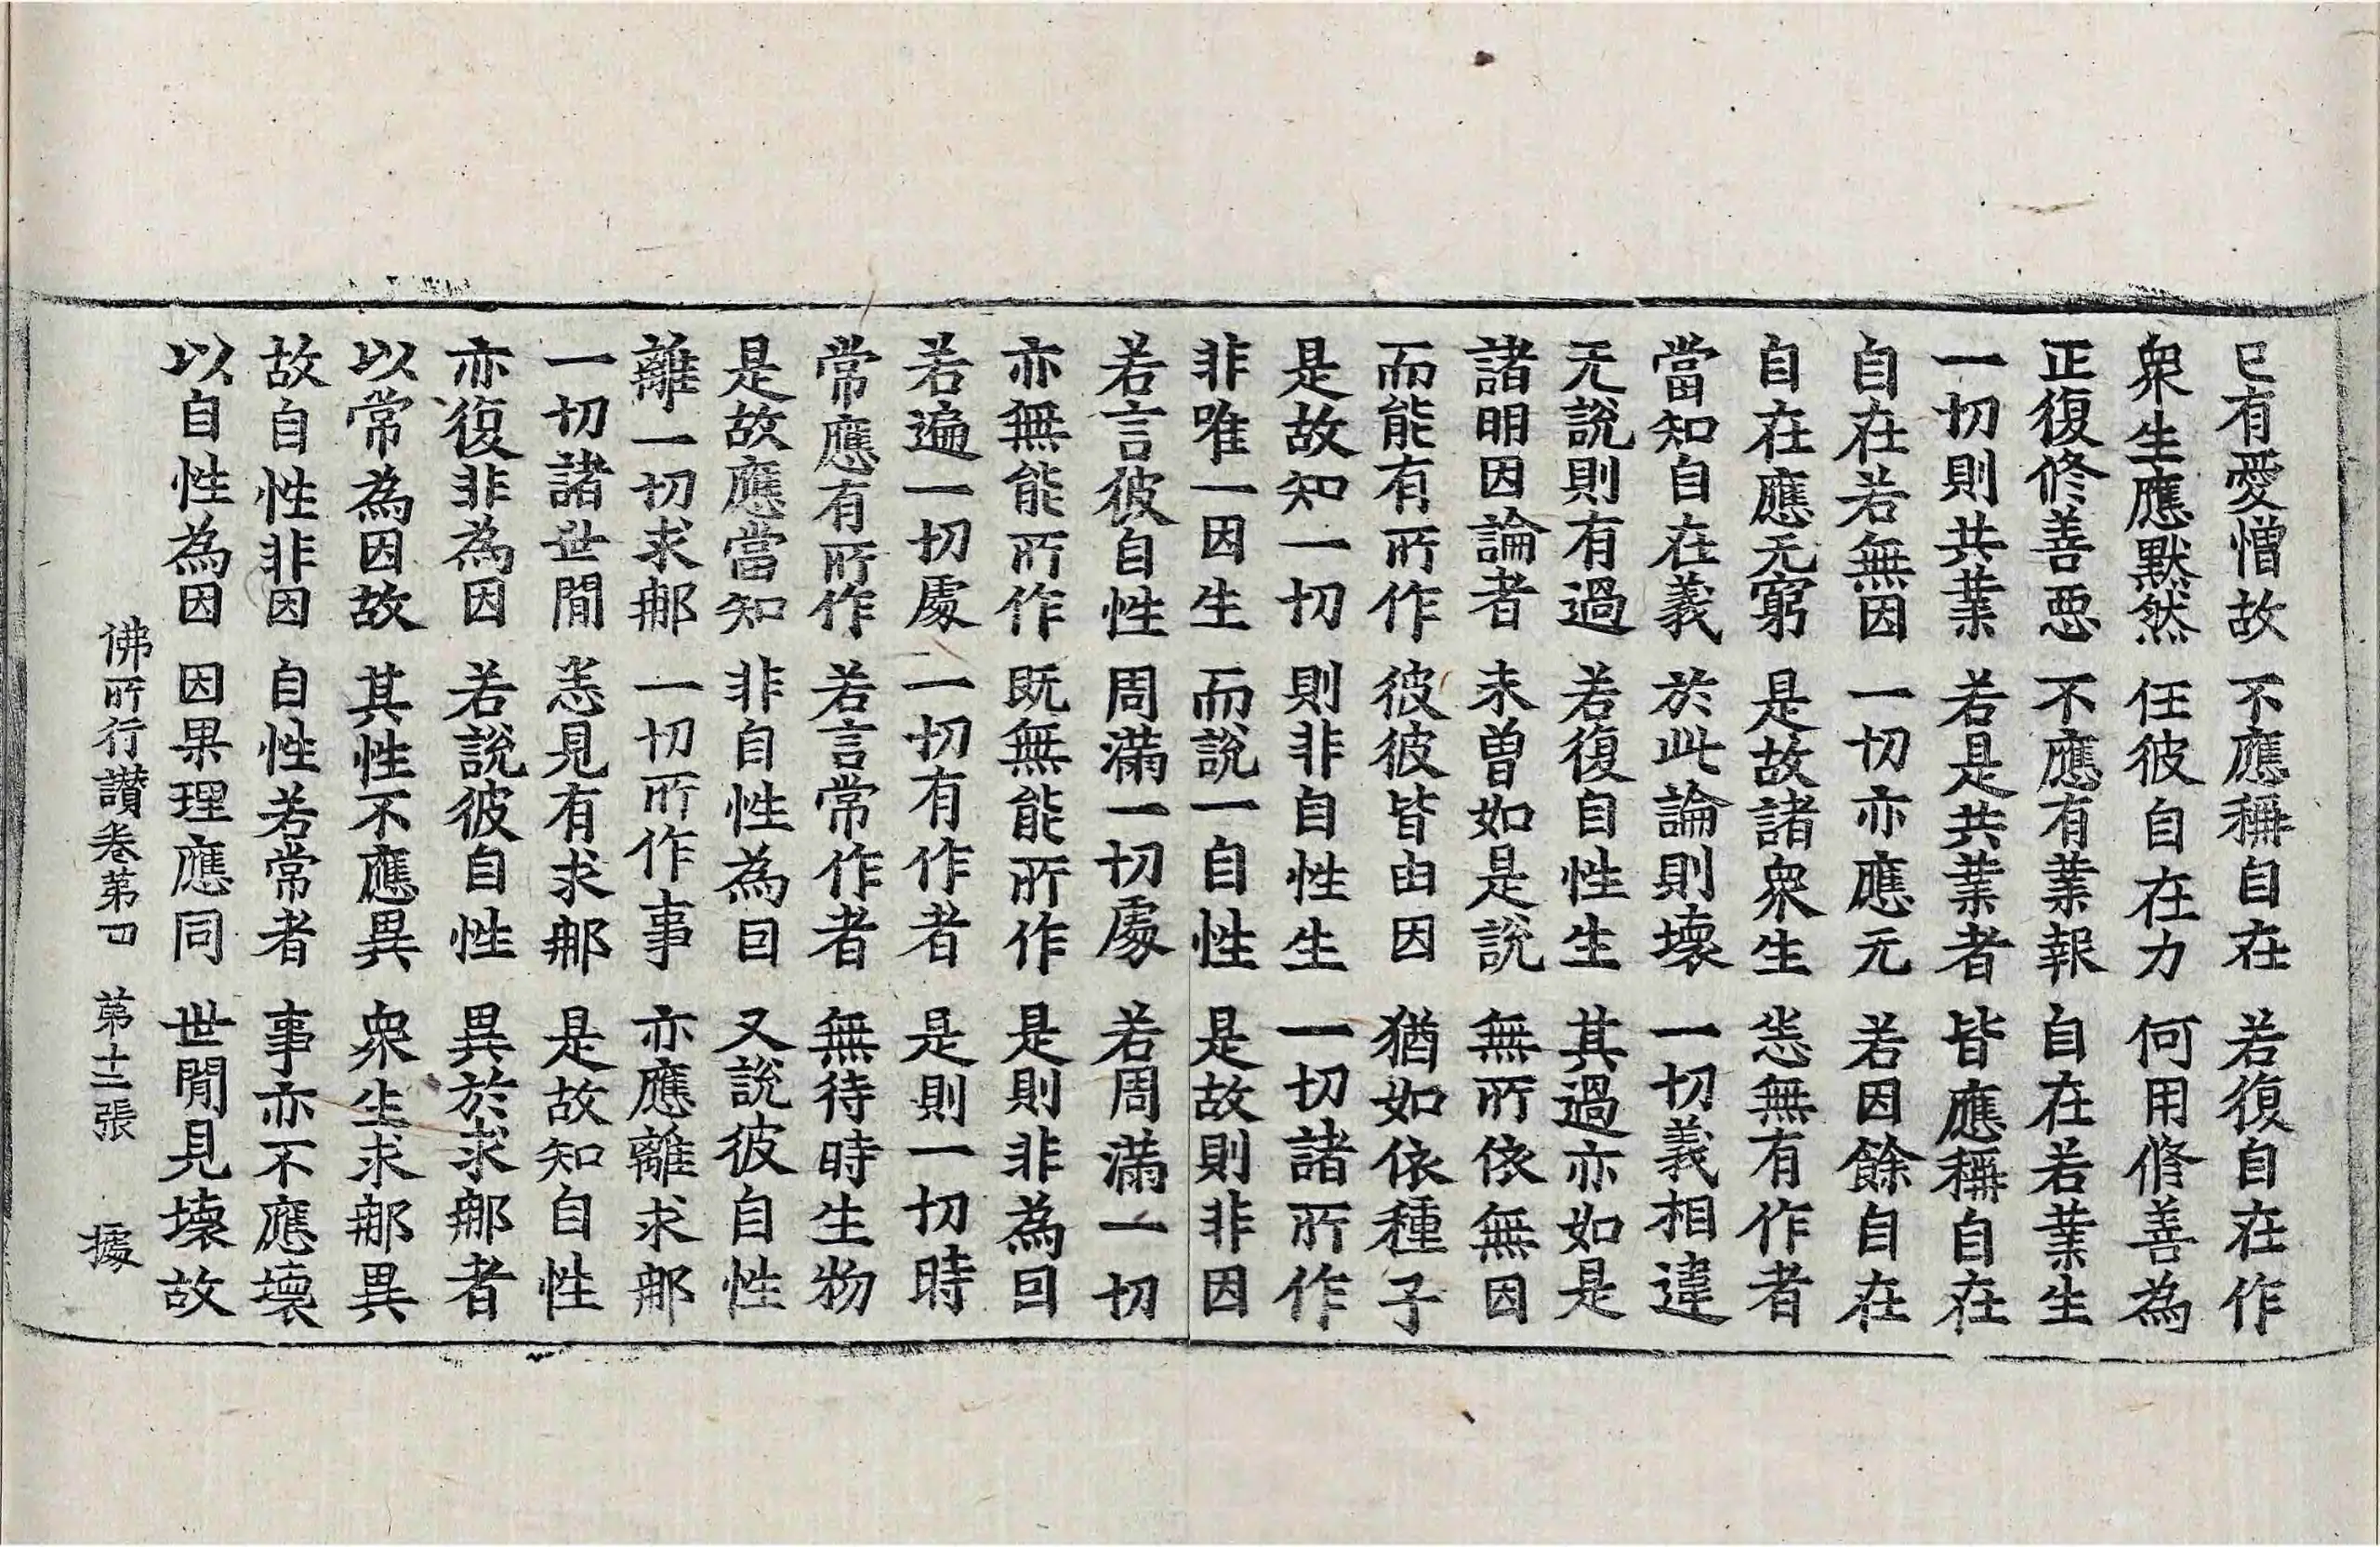 已有愛憎故 不應稱自在 若復自在作
衆生應默然 任彼自在力 何用修善為
正復修善惡 不應有業報 自在若業生
一切則共業 若是共業者 皆應稱自在
自在若無因 一切亦應无 若因餘自在
自在應无窮 是故諸衆生 悉無有作者
當知自在義 於此論則壞 一切義相違
无說則有過 若復自性生 其過亦如是
諸明因論者 未曽如是說 無所依無因
而能有所作 彼彼皆由因 猶如依種子
是故知一切 則非自性生 一切諸所作
非唯一因生 而說一自性 是故則非因
若言彼自性 周滿一切處 若周滿一切
亦無能所作 既無能所作 是則非為因
若遍一切處 一切有作者 是則一切時
常應有所作 若言常作者 無待時生物
是故應當知 非自性為因 又說彼自性
離一切求那 一切所作事 亦應離求那
一切諸世閒 悉見有求那 是故知自性
亦復非為因 若說彼自性 異於求那者
以常為因故 其性不應異 衆生求那異
故自性非因 自性若常者 事亦不應壞
以自性為因 因果理應同 世閒見壞故
佛所行讃卷第四 第十二張 據